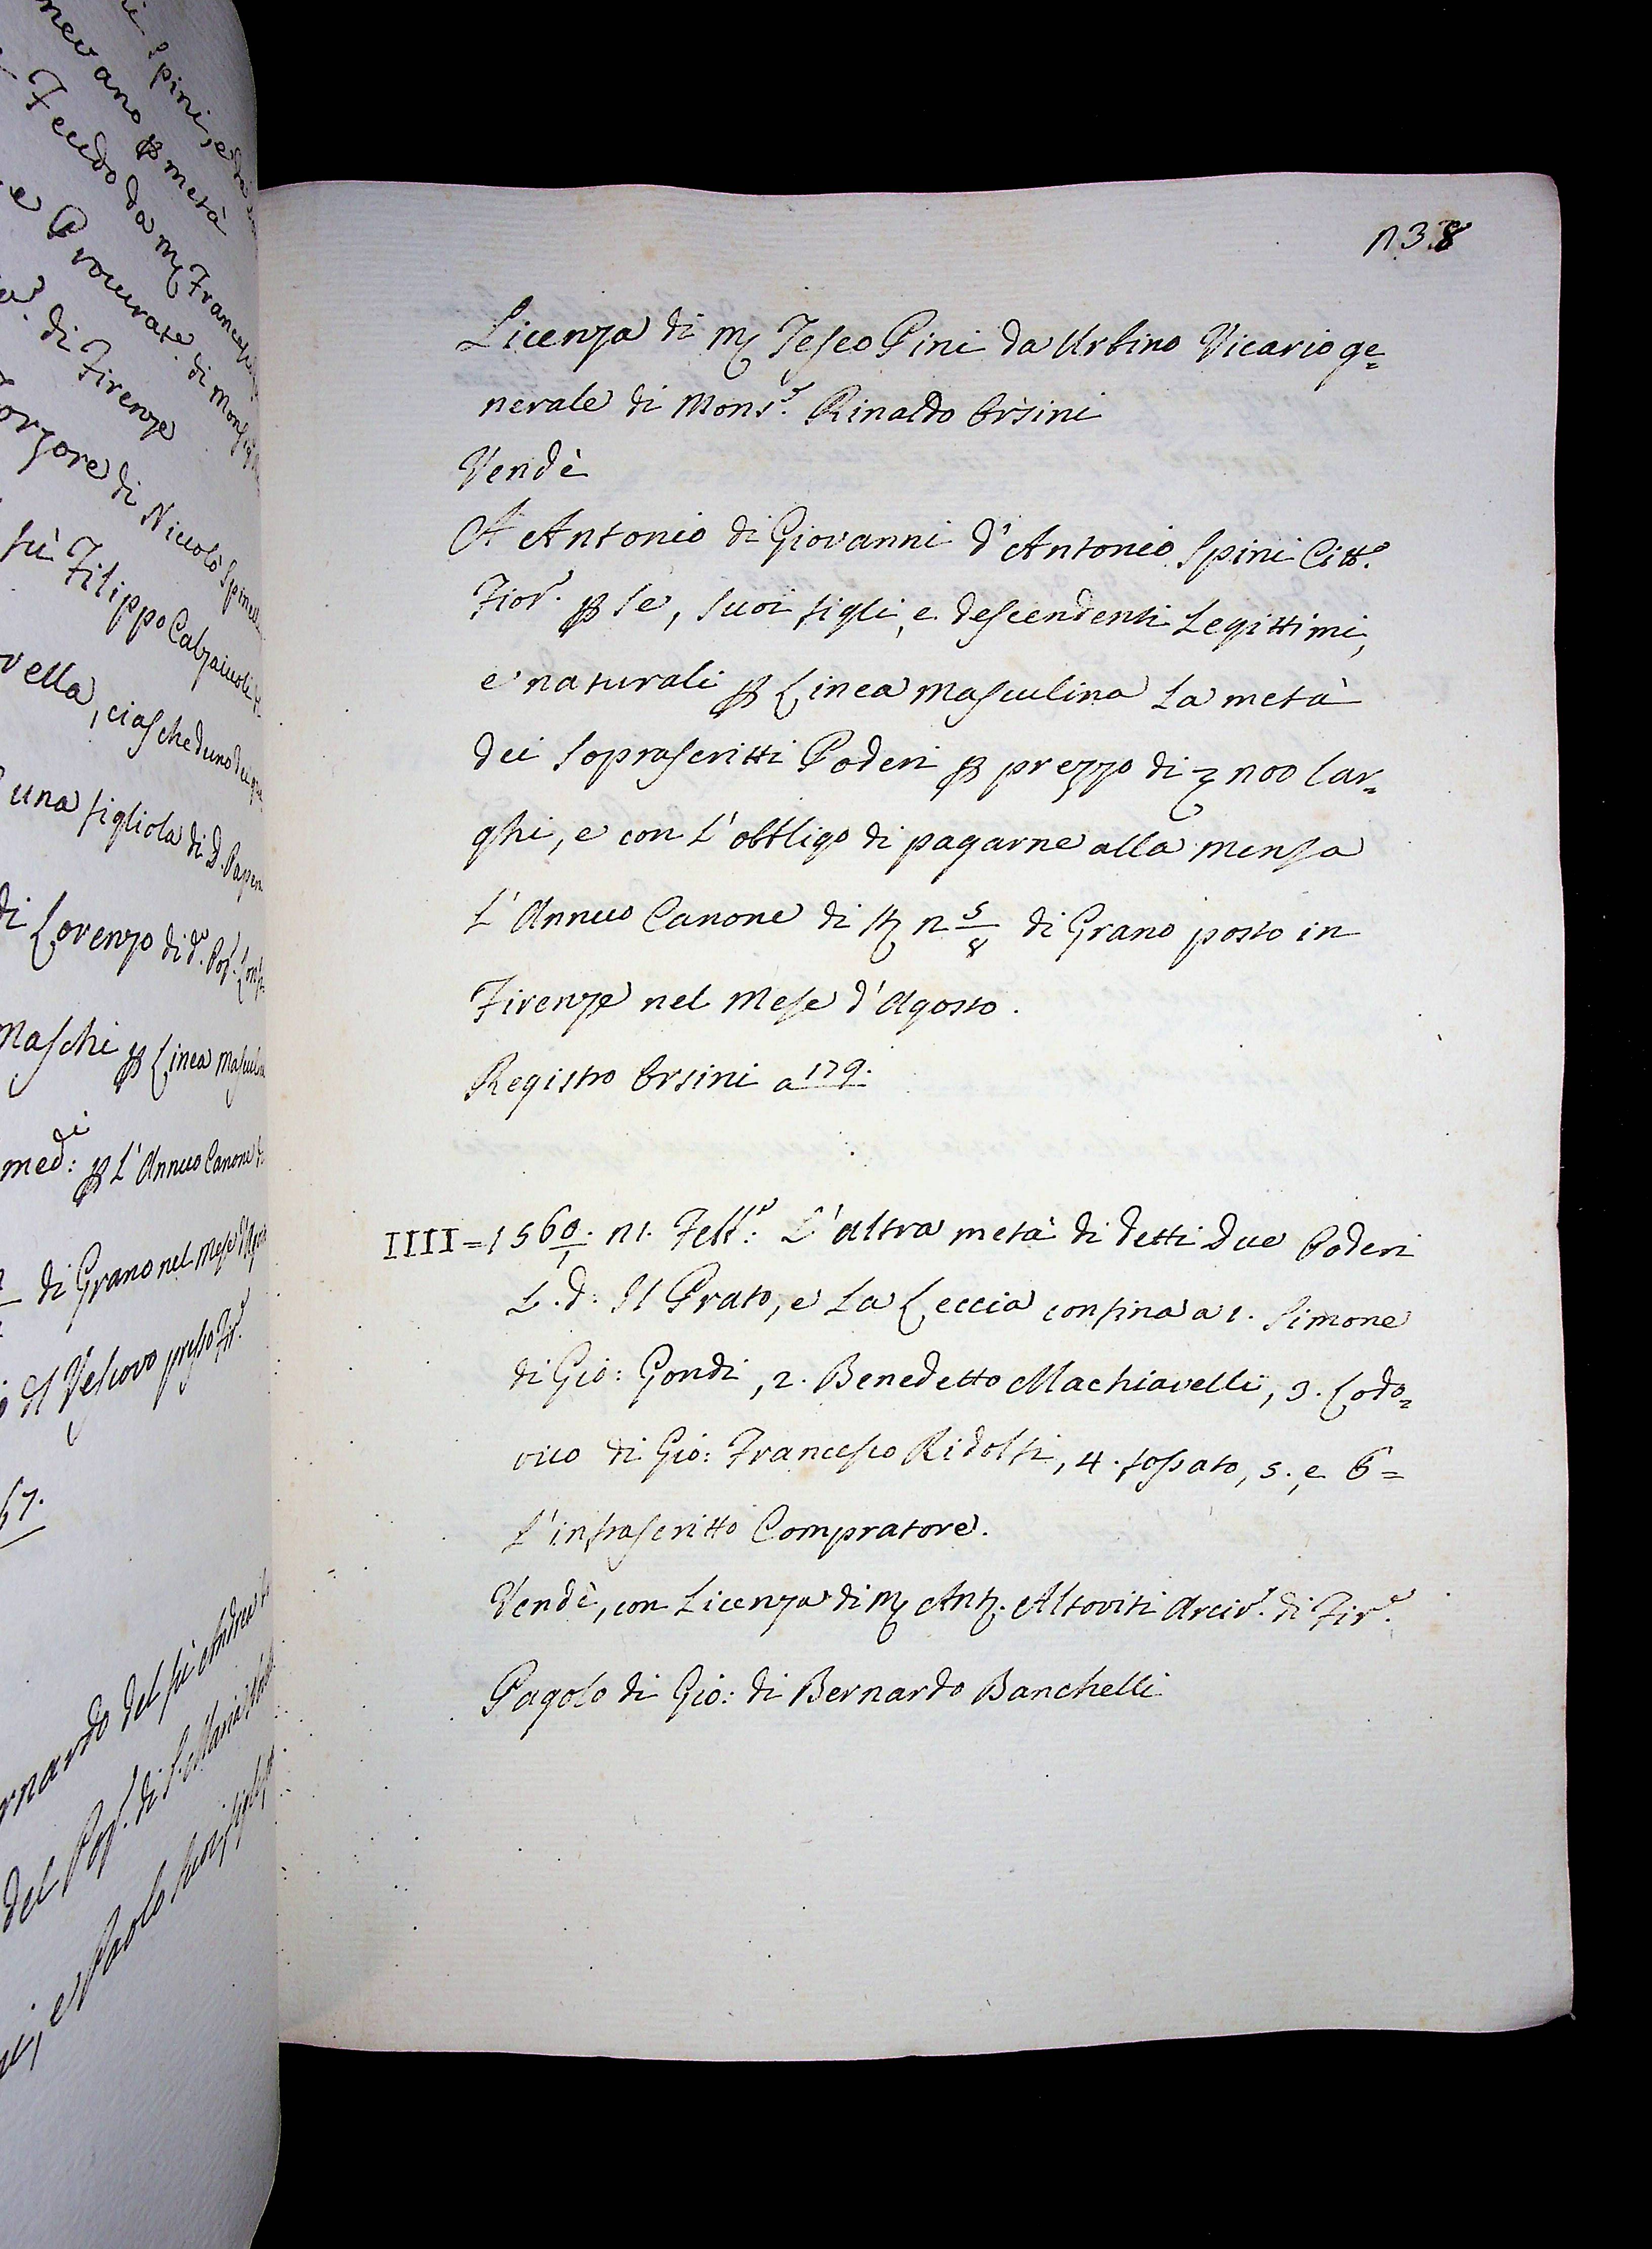 Spini, e da
nevano ꝑ metà
Feudo da Mſ Francesco
e Procurate. di Monsig
di Firenze
di Niccolò Spinelli
fù Filippo Calzaiuoli
vella, ciascheduno de que
una figliola di D. Papera
di Lorenzo di d.º Pop.
Maschi ꝑ Linea Masculina
med:mi ꝑ L'Annuo Canone
di Grano nel Mese d'Agosto
Il Vescovo presso Fir.e
67.
rnardo del fù Andrea
del Pop.º di S. Maria
e Paolo suoi figli
n38
Licenza di Mſ Teseo Pini da Urbino Vicario ge=
nerale di Mons.r Rinaldo Orsini
Vendè
A Antonio di Giovanni d'Antonio Spini Citt.º
Fior.º ꝑ se, suoi figli, e descendenti Legittimi,
e naturali ꝑ Linea Masculina La metà
dei soprascritti Poderi ꝑ prezzo di ꝫ n00 lar=
ghi, e con L'obbligo di pagarne alla Mensa
L'Annuo Canone di st n 5/8 di Grano posto in
Firenze nel Mese d'Agosto.
Registro Orsini a 179.
IIII = 1560/1. n1. Febb.º: L'altra metà di detti Due Poderi
L.d: Il Prato, e La Leccia confina a 1. Simone
di Gio: Gondi, 2. Benedetto Machiavelli, 3. Lodo=
vico di Gio: Francesco Ridolfi, 4. fossato, 5., e 6=
L'infrascritto Compratore.
Vendè, con Licenza di Mſ Ant.º Altoviti Arciv.º di Fir.e
Pagolo di Gio: di Bernardo Banchelli